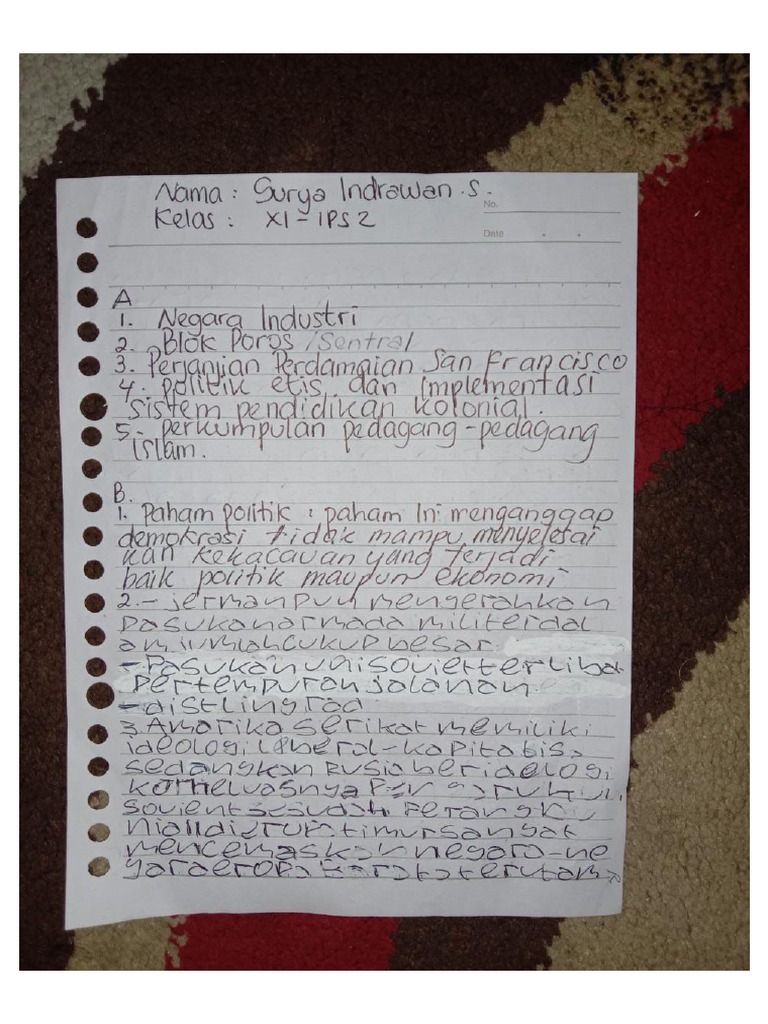 Nama : Surya Indrawan .S.
No.
Kelas : XI - IPS 2
Date
A
1. Negara Industri
2. Blok Poros /Sentral
3. Perjanjian Perdamaian San Francisco
4. politik etis dan implementasi
sistem pendidikan kolonial.
5. perkumpulan pedagang - pedagang
islam.
B.
1. Paham politik : paham ini menganggap
demokrasi tidak mampu menyelesai
kan kekacauan yang terjadi
baik politik maupun ekonomi
2. - jerman pun mengerahkan
pasukan armada militer dal
am jumlah cukup besar.
- Pasukan uni soviet terlibat
pertempuran jalanan
- di stlingrad
3. Amarika serikat memiliki
ideologi liberal - kapitalis,
sedangkan Rusia berideologi
soviet sesudah Perang
timur sangat
mencemaskan negara - ne
gara eropa barat terutama